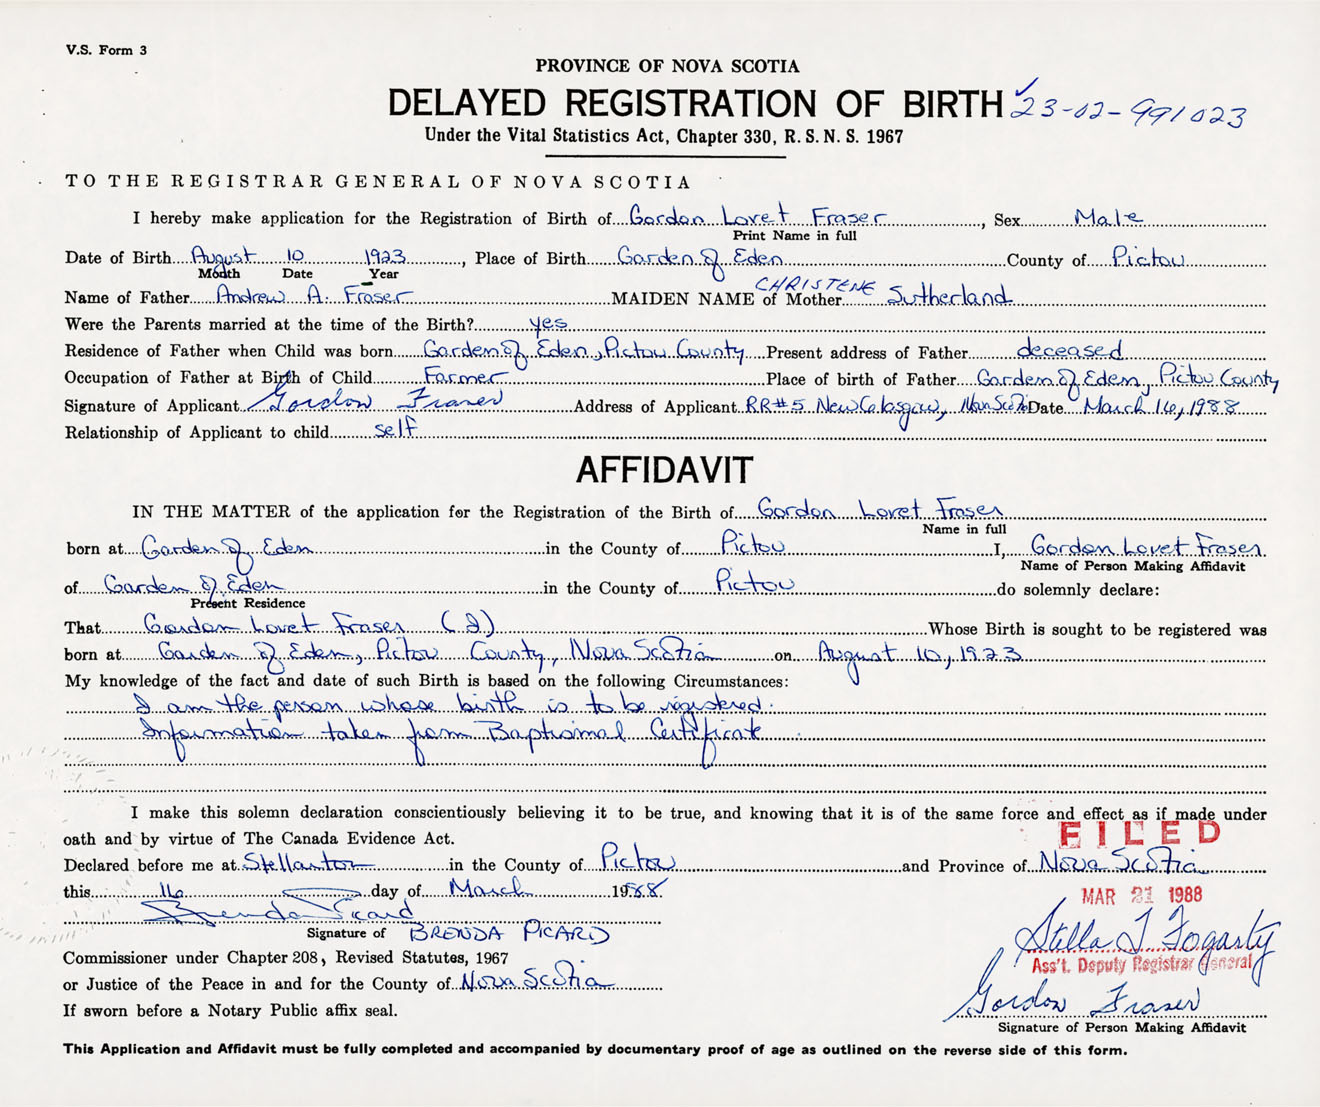 V.S. Form 3
PROVINCE OF NOVA SCOTIA
DELAYED REGISTRATION OF BIRTH ✓23-02-991023
Under the Vital Statistics Act, Chapter 330, R.S.N.S. 1967
TO THE REGISTRAR GENERAL OF NOVA SCOTIA
I hereby make application for the Registration of Birth of Gordon Lovet Fraser, Sex Male
Print Name in full
Date of Birth August 10 1923, Place of Birth Garden of Eden County of Pictou
Month Date Year
CHRISTENE
Name of Father Andrew A. Fraser MAIDEN NAME of Mother Sutherland
Were the Parents married at the time of the Birth? yes
Residence of Father when Child was born Garden of Eden, Pictou County Present address of Father deceased
Occupation of Father at Birth of Child Farmer Place of birth of Father Garden of Eden, Pictou County
Signature of Applicant Gordon Fraser Address of Applicant RR#5 New Glasgow, Nova Scotia Date March 16, 1988
Relationship of Applicant to child self
AFFIDAVIT
IN THE MATTER of the application for the Registration of the Birth of Gordon Lovet Fraser
Name in full
born at Garden of Eden in the County of Pictou I, Gordon Lovet Fraser
Name of Person Making Affidavit
of Garden of Eden in the County of Pictou do solemnly declare:
Present Residence
That Gordon Lovet Fraser (I) Whose Birth is sought to be registered was
born at Garden of Eden, Pictou County, Nova Scotia on August 10, 1923
My knowledge of the fact and date of such Birth is based on the following Circumstances:
I am the person whose birth is to be registered.
Information taken from Baptismal Certificate
I make this solemn declaration conscientiously believing it to be true, and knowing that it is of the same force and effect as if made under
oath and by virtue of The Canada Evidence Act.
FILED
Declared before me at Stellarton in the County of Pictou and Province of Nova Scotia
this 16 day of March 1988
MAR 21 1988
Brenda Picard
Signature of BRENDA PICARD
Stella T Fogarty
Commissioner under Chapter 208, Revised Statutes, 1967
Ass't. Deputy Registrar General
or Justice of the Peace in and for the County of Nova Scotia
Gordon Fraser
If sworn before a Notary Public affix seal.
Signature of Person Making Affidavit
This Application and Affidavit must be fully completed and accompanied by documentary proof of age as outlined on the reverse side of this form.